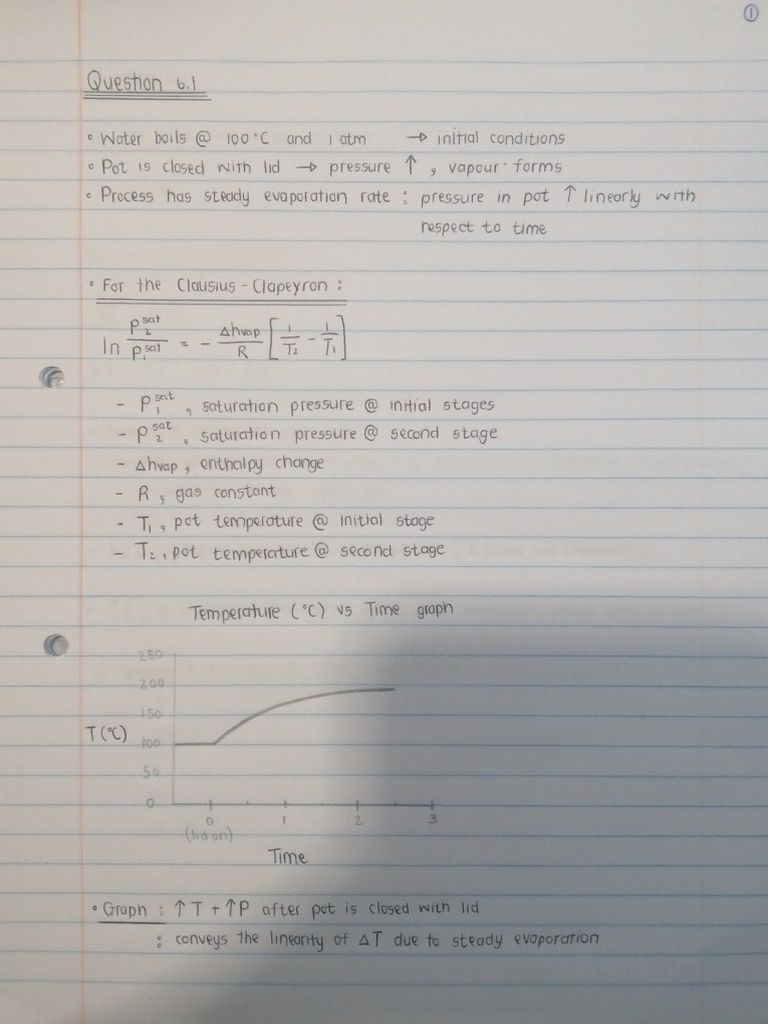 ①
Question 6.1
• Water boils @ 100°C and 1 atm → initial conditions
• Pot is closed with lid → pressure ↑, vapour forms
• Process has steady evaporation rate : pressure in pot ↑ linearly with
respect to time
• For the Clausius-Clapeyron :
ln P₂ˢᵃᵗ/P₁ˢᵃᵗ = - Δhvap/R [1/T₂ - 1/T₁]
- P₁ˢᵃᵗ, saturation pressure @ initial stages
- P₂ˢᵃᵗ, saturation pressure @ second stage
- Δhvap, enthalpy change
- R, gas constant
- T₁, pot temperature @ initial stage
- T₂, pot temperature @ second stage
Temperature (°C) vs Time graph
250
200
150
T(°C) 100
50
0
0 1 2 3
(lid on)
Time
• Graph : ↑T + ↑P after pot is closed with lid
: conveys the linearity of ΔT due to steady evaporation